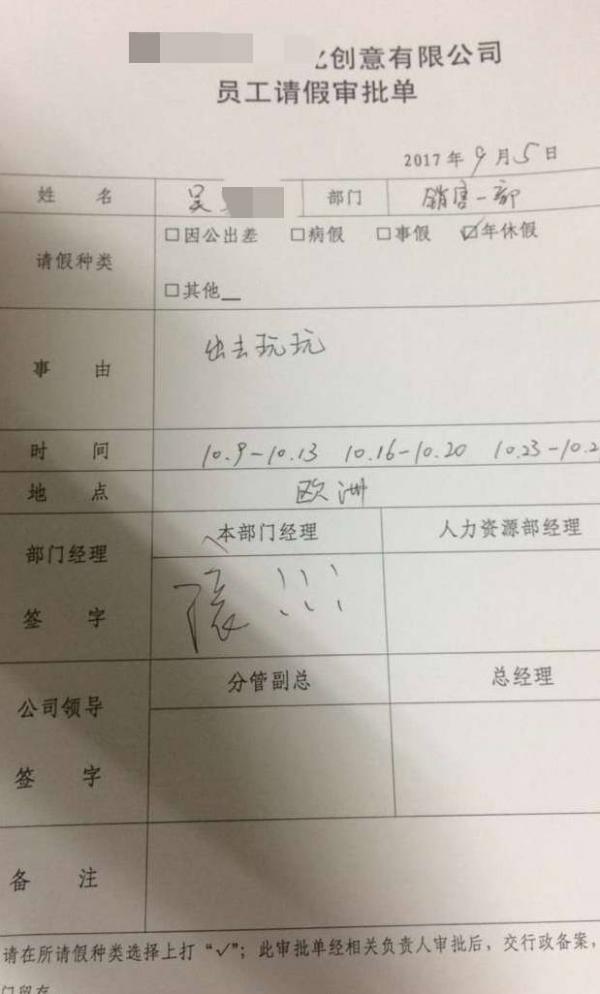 创意有限公司
员工请假审批单
2017年9月5日
姓 名 吴 部门 销售一部
请假种类 □因公出差 □病假 □事假 ☑年休假
□其他__
事 由 出去玩玩
时 间 10.9-10.13 10.16-10.20 10.23-10.2
地 点 欧洲
部门经理 本部门经理 人力资源部经理
签 字 !!!
公司领导 分管副总 总经理
签 字
备 注
请在所请假种类选择上打“✓”；此审批单经相关负责人审批后，交行政备案，
门留存